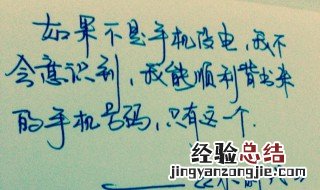 如果不是手机没电，我不
会意识到，我能顺利背出来
的手机号码，只有这一个.
经验总结
www.jingyanzongjie.com